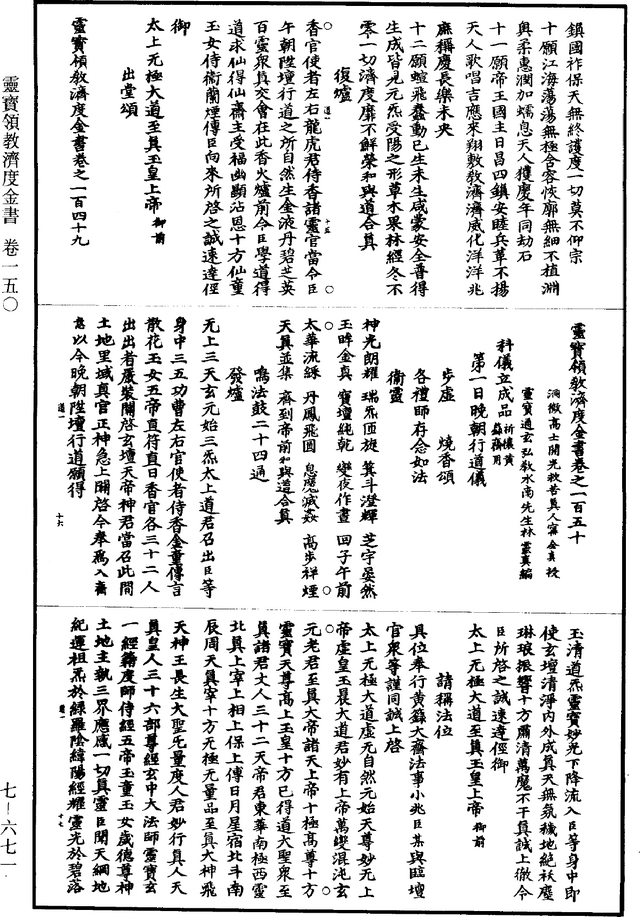 鎮國祚保天無終護度一切莫不仰宗
十願江海蕩蕩無極含容恢廓無細不植淵
奧柔惠潤加蠕息天人穫慶年同劫石
十一願帝王國主日昌四鎮安睦兵革不揚
天人歌唱吉應來翔敷教濟濟威化洋洋兆
庶稱慶長樂未央
十二願蝖飛蠢動已生未生咸蒙安全普得
生成皆見元炁受陽之形草木果林經冬不
零一切濟度靡不鮮榮和與道合真
復爐
香官使者左右龍虎君侍香諸靈官當令臣
午朝陞壇行道之所自然生金液丹碧芝英
百靈衆真交會在此香火爐前令臣學道得
道求仙得仙齋主受福幽顯沾恩十方仙童
玉女侍衛蘭煙傳臣向來所啓之誠速達徑
御
太上無極大道至真玉皇上帝 御前
出堂頌
靈寶領教濟度金書卷之一百四十九
靈寶領教濟度金書卷之一百五十
洞微高士開光救苦真人甯全真授
靈寶通玄弘教水南先生林靈真編
科儀立成品 祈禳黃籙齋用
第一日晚朝行道儀
步虛 燒香頌
各禮師存念如法
衛靈
神光朗耀 瑞炁頂旋 箕斗澄輝 芝宇晏然
玉眸金真 寶壇純乾 變夜作晝 回子午前
太華流綵 丹鳳飛圓 息應滅姦 高步祥煙
天真並集 齊到帝前 和與道合真
鳴法鼓二十四通
發爐
无上三天玄元始三炁太上道君召出臣等
身中三五功曹左右官使者侍香金童傳言
散花玉女五帝直符直日香官各三十二人
出出者嚴裝關啓玄壇天帝神君當召此間
土地里域真官正神急上關啓今奉爲入齋
意以今晚朝陞壇行道願得
玉清道炁靈寶妙光下降流入臣等身中即
使玄壇清淨內外成真天無氛穢地絕袄塵
琳琅振響十方肅清萬魔不干真誠上徹令
臣所啓之誠速達徑御
太上無極大道至真玉皇上帝 御前
請稱法位
具位奉行黃籙大齋法事小兆臣某與臨壇
官衆等謹同誠上啓
太上无極大道虛无自然元始天尊妙无上
帝虛皇玉晨大道君妙有上帝萬變混沌玄
元老君至真大帝諸天上帝十極高尊十方
靈寶天尊高上玉皇十方已得道大聖衆至
真諸君丈人三十二天帝君東華南極西靈
北真上宰上相上保上傅日月星宿北斗南
辰周天真宰十方无極无量品至真大神飛
天神王長生大聖无量度人君妙行真人天
真皇人三十六部尊經玄中大法師靈寶玄
一經籍度師侍經五帝玉童玉女歲德尊神
土地主執三界應感一切真靈臣聞天綱地
紀運祖炁於綠羅陰緯陽經耀靈光於碧落
靈寶領教濟度金書 卷一五〇
七—六七一